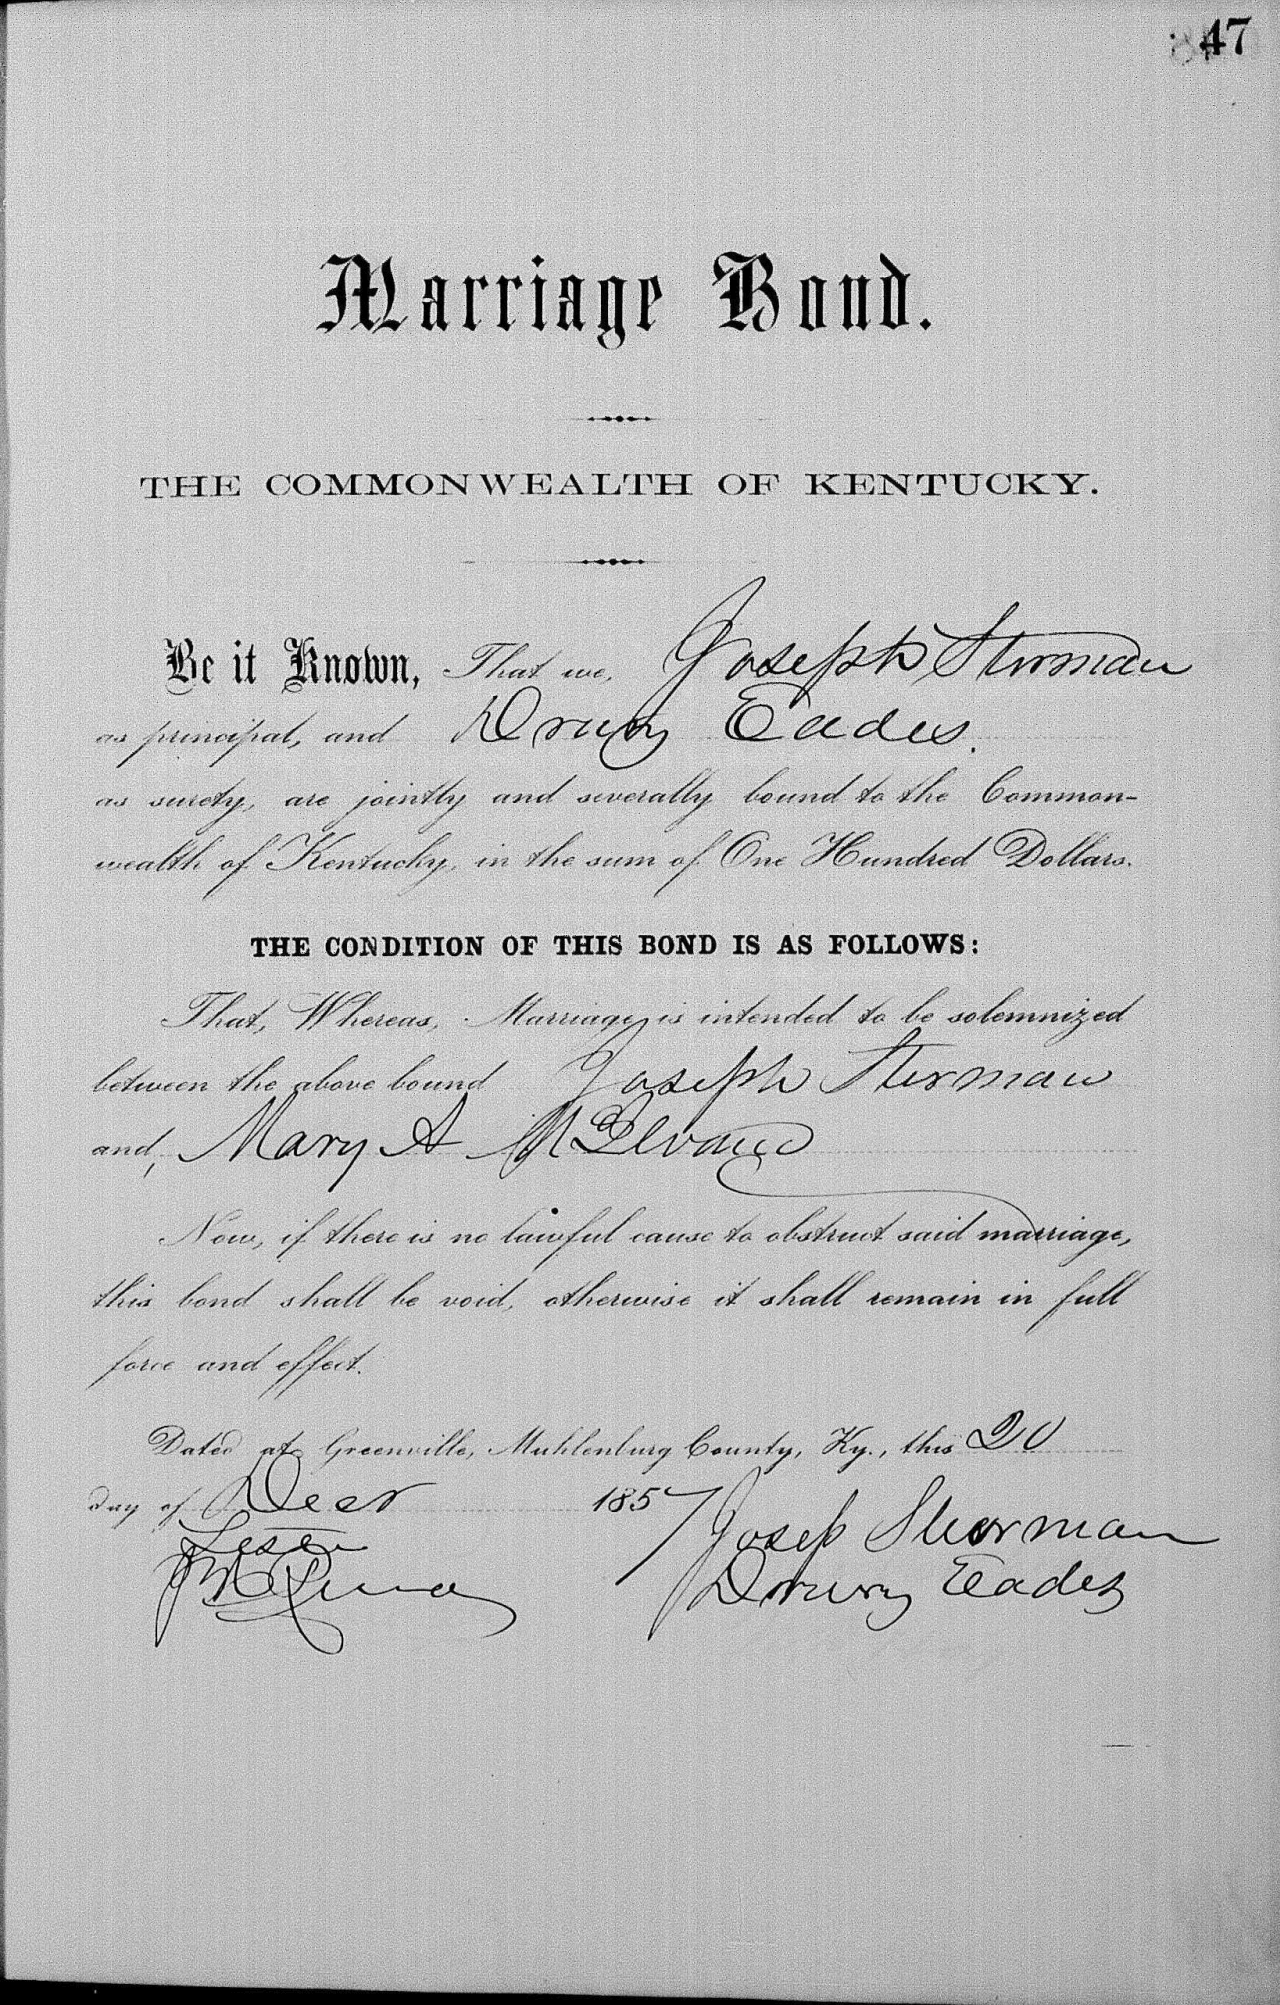 47
Marriage Bond.
THE COMMONWEALTH OF KENTUCKY.
Be it Known, That we, Joseph Sterman
as principal, and Drury Eades.
as surety, are jointly and severally bound to the Common-
wealth of Kentucky, in the sum of One Hundred Dollars.
THE CONDITION OF THIS BOND IS AS FOLLOWS:
That, Whereas, Marriage is intended to be solemnized
between the above bound Joseph Sterman
and, Mary A
Now, if there is no lawful cause to obstruct said marriage,
this bond shall be void, otherwise it shall remain in full
force and effect.
Dated at Greenville, Muhlenburg County, Ky., this 20
day of Decr 1857 Josep Sterman
Drury Eades